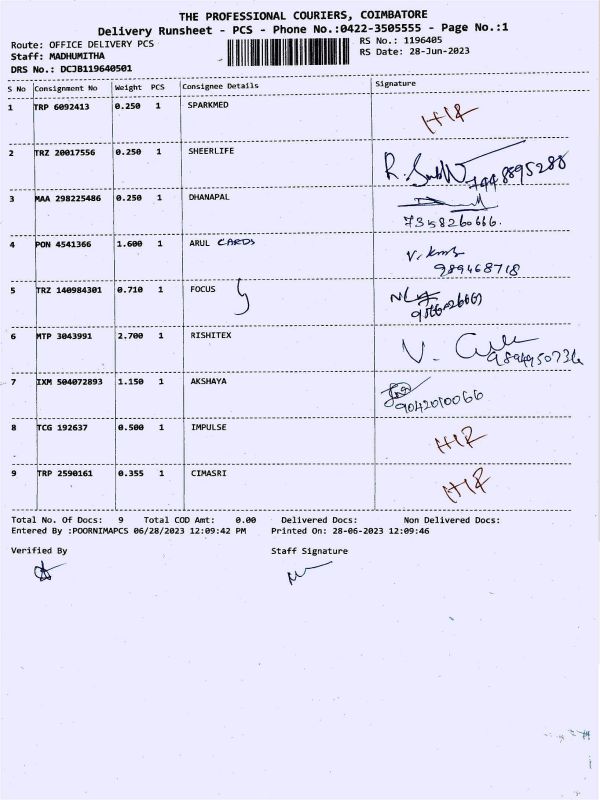 THE PROFESSIONAL COURIERS, COIMBATORE
Delivery Runsheet - PCS - Phone No.:0422-3505555 - Page No.:1
Route: OFFICE DELIVERY PCS RS No.: 1196405
Staff: MADHUMITHA RS Date: 28-Jun-2023
DRS No.: DCJB119640501
S No Consignment No Weight PCS Consignee Details Signature
1 TRP 6092413 0.250 1 SPARKMED
2 TRZ 20017556 0.250 1 SHEERLIFE
3 MAA 298225486 0.250 1 DHANAPAL
7358260666.
4 PON 4541366 1.600 1 ARUL CARDS
989468718
5 TRZ 140984301 0.710 1 FOCUS
6 MTP 3043991 2.700 1 RISHITEX
9894950734
7 IXM 504072893 1.150 1 AKSHAYA
9042010066
8 TCG 192637 0.500 1 IMPULSE
9 TRP 2590161 0.355 1 CIMASRI
Total No. Of Docs: 9 Total COD Amt: 0.00 Delivered Docs: Non Delivered Docs:
Entered By :POORNIMAPCS 06/28/2023 12:09:42 PM Printed On: 28-06-2023 12:09:46
Verified By Staff Signature